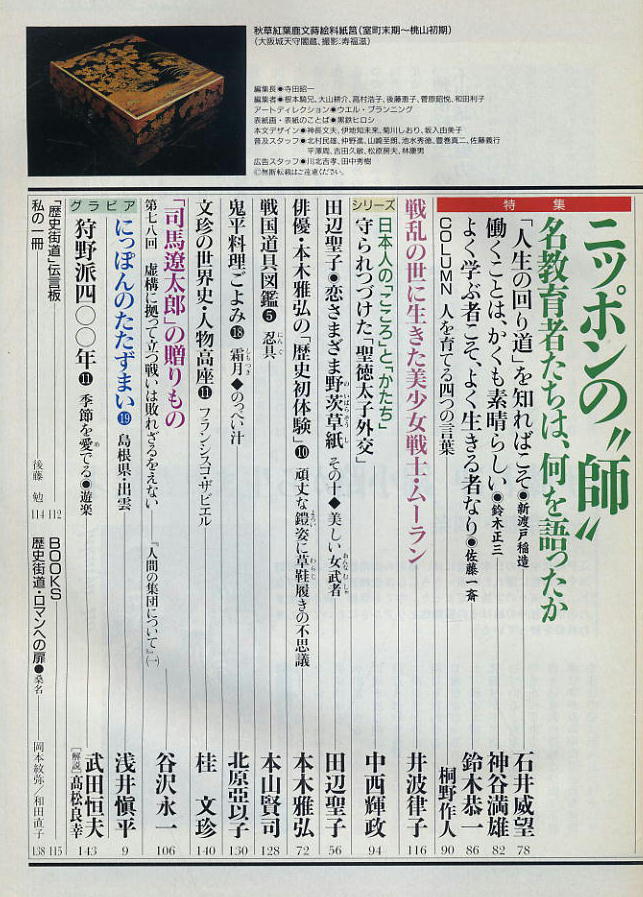 秋草紅葉鹿文蒔絵料紙箱(室町末期~桃山初期)
(大阪城天守閣蔵、撮影:寿福滋)
編集長●寺田昭一
編集者●根本騎兄、大山耕介、高村浩子、後藤恵子、菅原昭悦、和田利子
アートディレクション●ウエル・プランニング
表紙画・表紙のことば●黒鉄ヒロシ
本文デザイン●神長文夫、伊地知未来、菊川しおり、坂入由美子
普及スタッフ●北村民雄、仲野進、山﨑至朗、池水秀徳、豊巻真二、佐藤義行
平澤周、吉田久敏、松原房夫、林慶男
広告スタッフ●川北吉孝、田中秀樹
©無断転載はご遠慮ください。
特集
ニッポンの〝師〟
名教育者たちは、何を語ったか
「人生の回り道」を知ればこそ●新渡戸稲造 石井威望 78
働くことは、かくも素晴らしい●鈴木正三 神谷満雄 82
よく学ぶ者こそ、よく生きる者なり●佐藤一斎 鈴木恭一 86
COLUMN 人を育てる四つの言葉 桐野作人 90
戦乱の世に生きた美少女戦士・ムーラン 井波律子 116
シリーズ
日本人の「こころ」と「かたち」
守られつづけた「聖徳太子外交」 中西輝政 94
田辺聖子●恋さまざま野茨草紙 その十◆美しい女武者 田辺聖子 56
俳優・本木雅弘の「歴史初体験」⑩ 頑丈な鎧姿に草鞋履きの不思議 本木雅弘 72
戦国道具図鑑⑤ 忍具 本山賢司 128
鬼平料理ごよみ⑱ 霜月◆のっぺい汁 北原亞以子 130
文珍の世界史・人物高座⑪ フランシスコ・ザビエル 桂 文珍 140
「司馬遼太郎」の贈りもの
第七八回 虚構に拠って立つ戦いは敗れざるをえない――『人間の集団について』(一) 谷沢永一 106
グラビア
にっぽんのたたずまい⑲ 島根県・出雲 浅井愼平 9
狩野派四〇〇年⑪ 季節を愛でる●遊楽 武田恒夫 [解説]高松良幸 143
「歴史街道」伝言板 112
私の一冊 後藤 勉 114
BOOKS 115
歴史街道・ロマンへの扉●桑名 岡本紋弥/和田直子 138